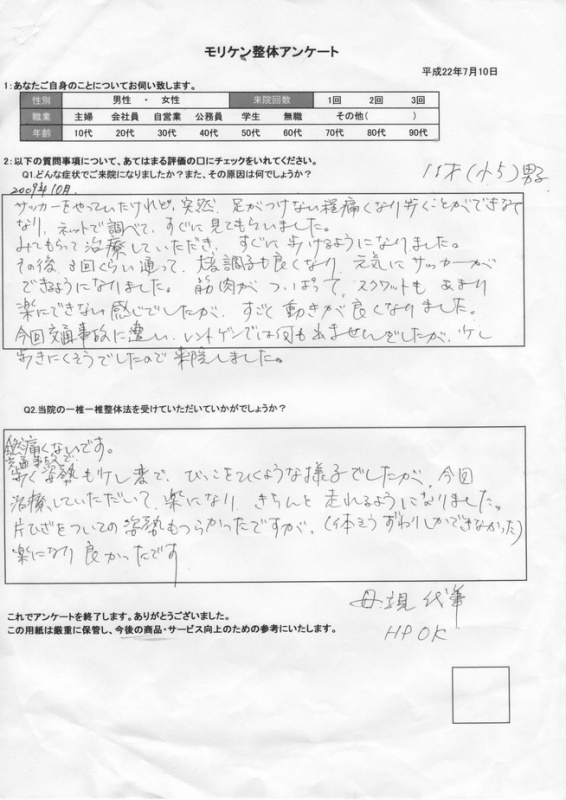 モリケン整体アンケート
平成22年7月10日
1:あなたご自身のことについてお伺い致します。
性別 男性 ・ 女性 来院回数 1回 2回 3回
職業 主婦 会社員 自営業 公務員 学生 無職 その他( )
年齢 10代 20代 30代 40代 50代 60代 70代 80代 90代
2:以下の質問事項について、あてはまる評価の口にチェックをいれてください。
(小5)男子
Q1.どんな症状でご来院になりましたか?また、その原因は何でしょうか?
2009年10月.
サッカーをやっていたけれど、突然、足がつけない程痛くなり歩くことができなく
なり、ネットで調べて、すぐに見てもらいました。
みてもらって治療していただき、すぐに歩けるようになりました。
その後、3回ぐらい通って、大変調子も良くなり、元気にサッカーが
できるようになりました。筋肉が、つっぱって、スクワットも あまり
楽にできない感じでしたが、すごく動きが良くなりました。
今回交通事故に遭い、レントゲンでは何も出ませんでしたが、少し
歩きにくそうでしたので来院しました。
Q2.当院の一椎一椎整体法を受けていただいていかがでしょうか?
全然痛くないです。
交通事故で
歩く姿勢も少し変で、びっこをひくような様子でしたが、今回
治療していただいて、楽になり、きちんと走れるようになりました。
片ひざをついての姿勢もつらかったですが、(体そうずわりしかできなかった)
楽になり良かったです
母 代筆
HP OK
これでアンケートを終了します。ありがとうございました。
この用紙は厳重に保管し、今後の商品・サービス向上のための参考にいたします。